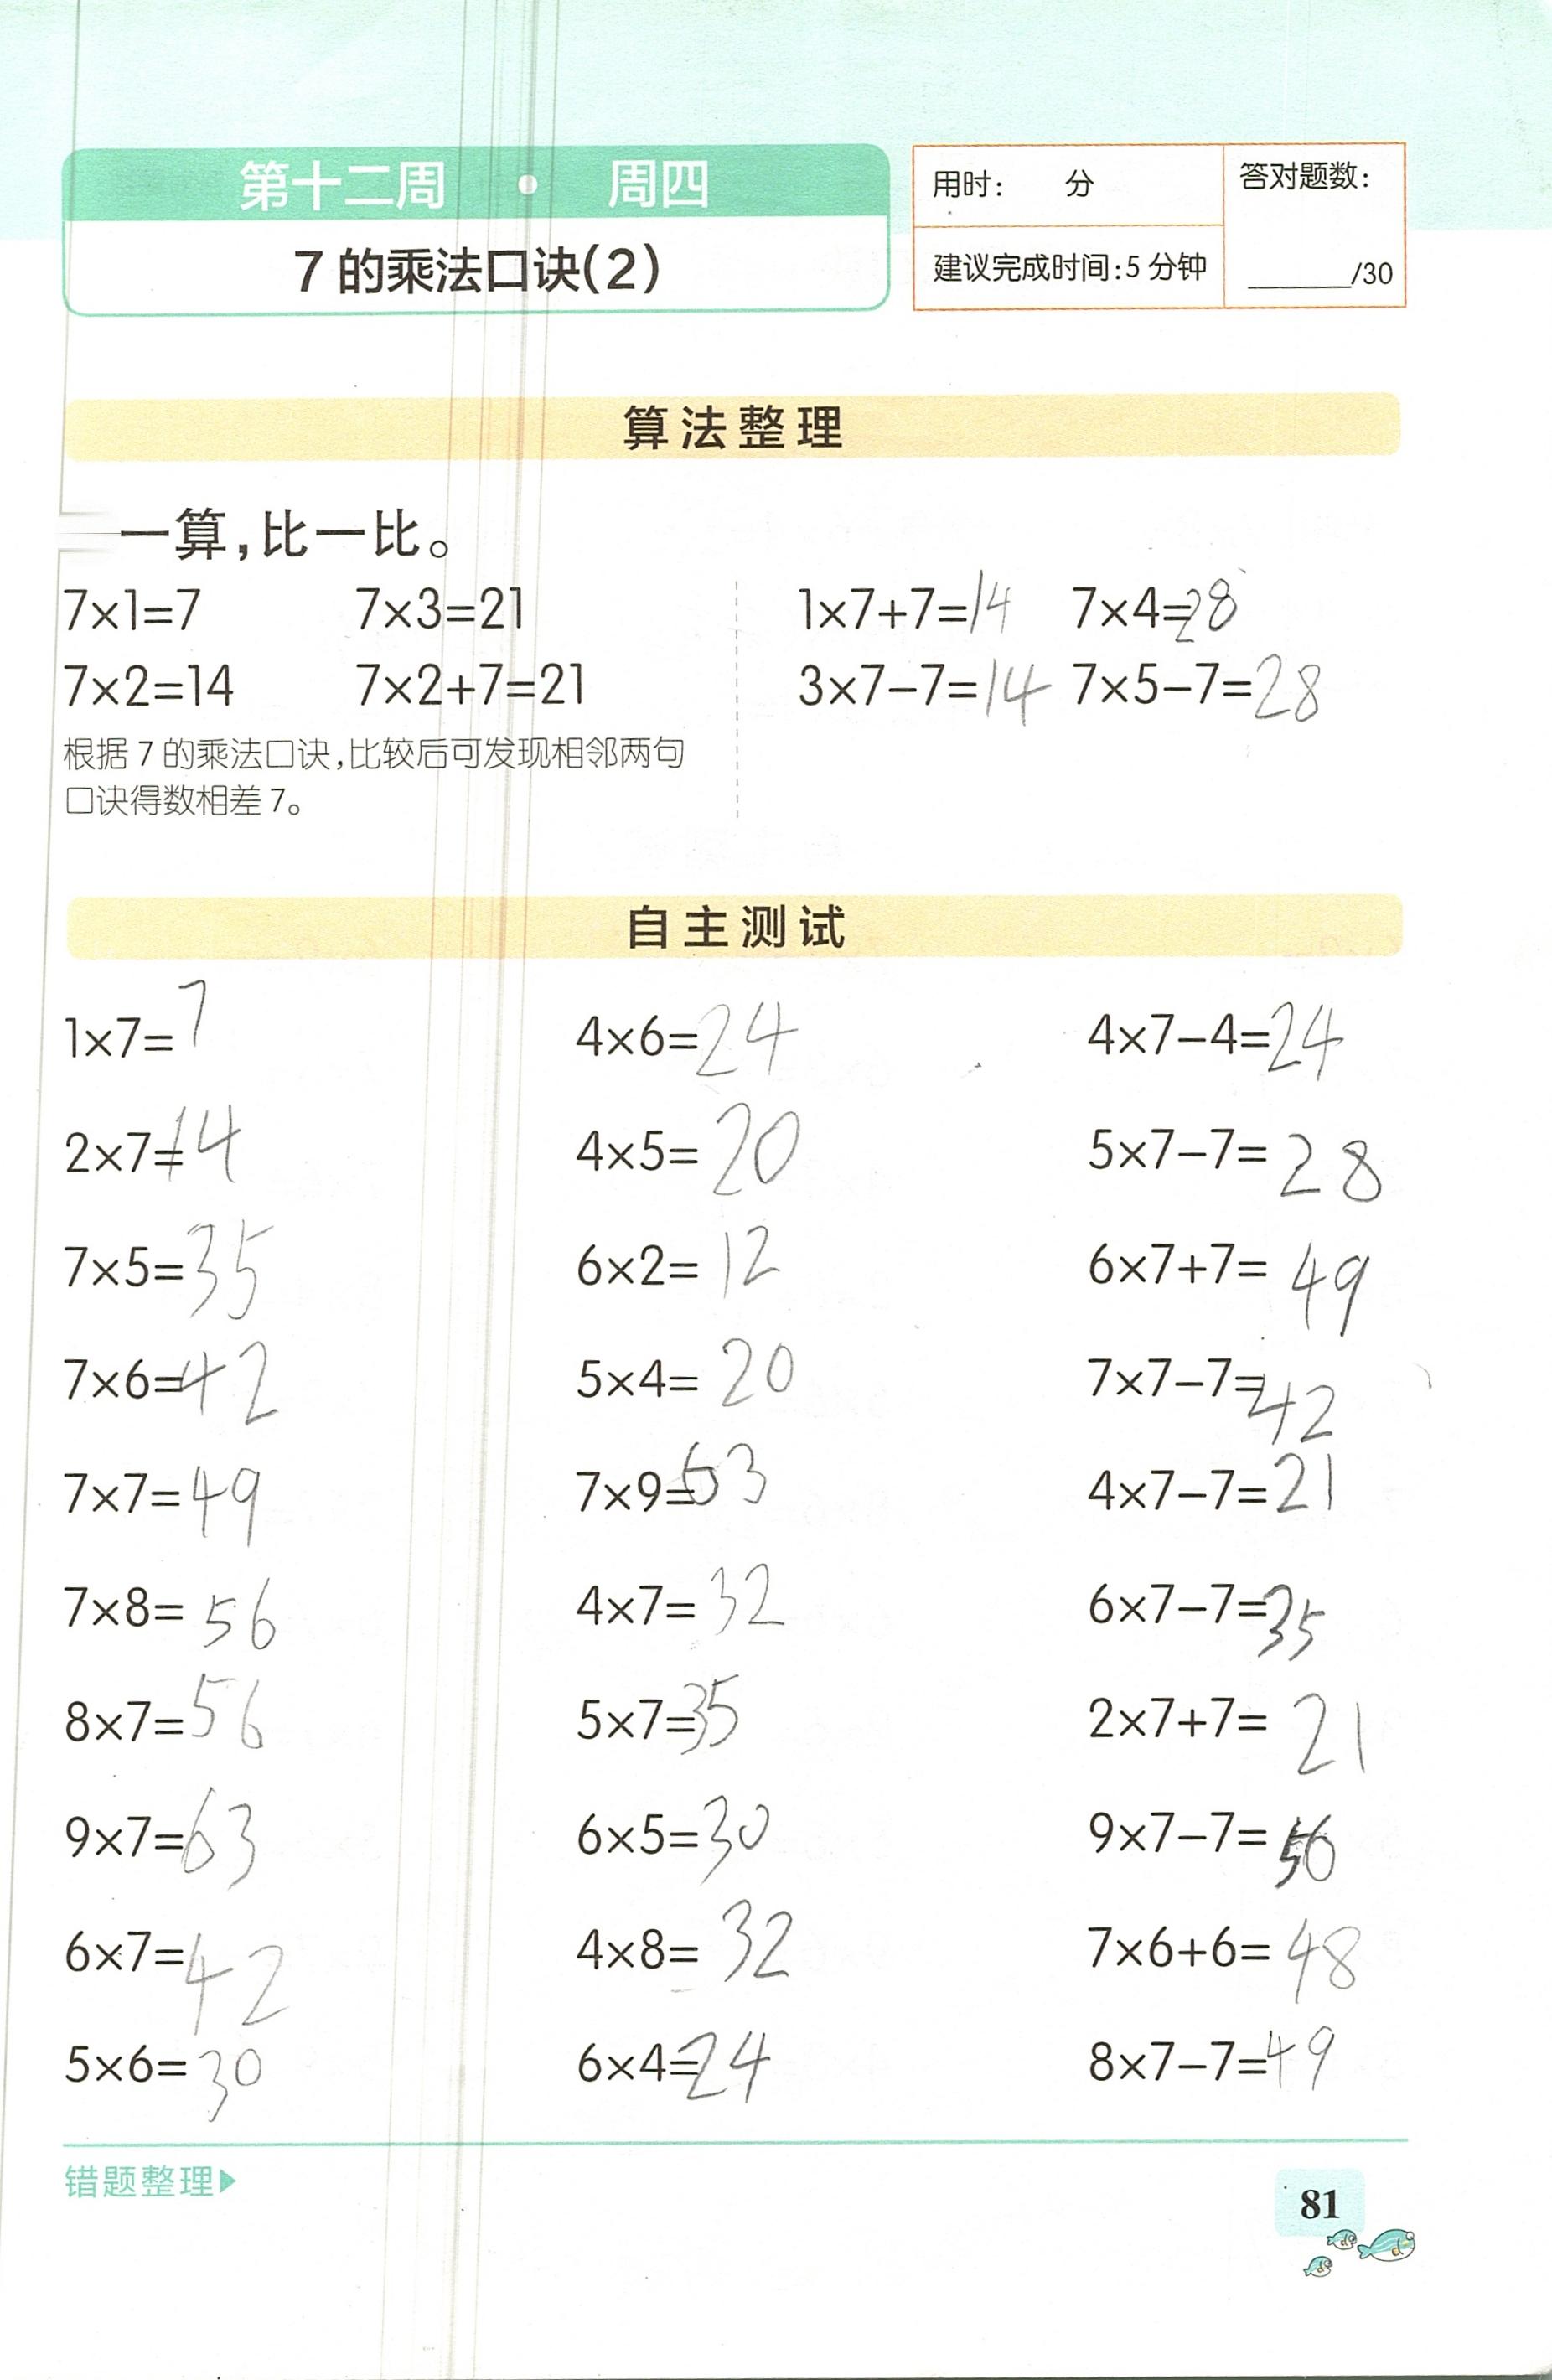 第十二周 · 周四
7的乘法口诀(2)
用时: 分
建议完成时间:5分钟
答对题数:
______/30
算法整理
一算,比一比。
7×1=7 7×3=21
7×2=14 7×2+7=21
根据7的乘法口诀,比较后可发现相邻两句
口诀得数相差7。
1×7+7=14 7×4=28
3×7-7=14 7×5-7=28
自主测试
1×7=7 4×6=24 4×7-4=24
2×7=14 4×5=20 5×7-7=28
7×5=35 6×2=12 6×7+7=49
7×6=42 5×4=20 7×7-7=42
7×7=49 7×9=63 4×7-7=21
7×8=56 4×7=32 6×7-7=35
8×7=56 5×7=35 2×7+7=21
9×7=63 6×5=30 9×7-7=56
6×7=42 4×8=32 7×6+6=48
5×6=30 6×4=24 8×7-7=49
错题整理
81